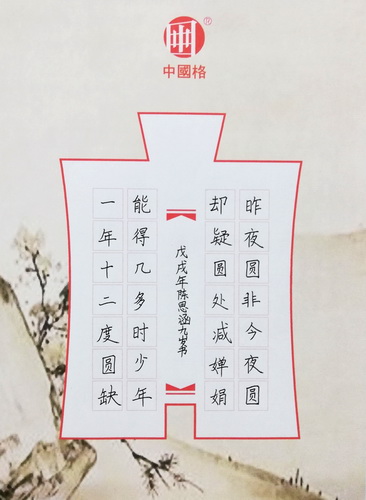 中國格
®
昨夜圆非今夜圆
却疑圆处减婵娟
戊戌年陈思涵九岁书
能得几多时少年
一年十二度圆缺